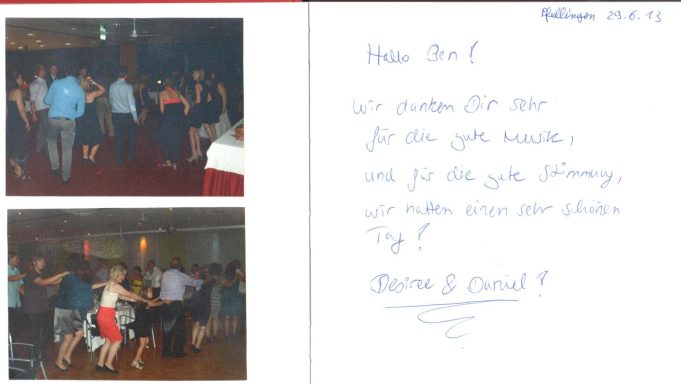 Pfullingen 29.6.13
Hallo Ben!
wir danken Dir sehr
für die gute Musik,
und für die gute Stimmung,
wir hatten einen sehr schönen
Tag!
Desiree & Daniel!